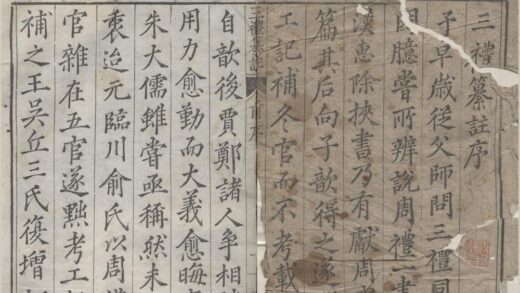 三禮纂註序
予早歲從父師問三禮同
臆嘗所辨說周禮一書
漢惠除挾書乃有獻周
篇其后向子歆得之遂
工記補冬官而不考載
三禮纂註 前序
自歆後賈鄭諸人爭相
用力愈勤而大義愈晦
朱大儒雖嘗亟稱然未
迨元臨川俞氏以周
官雜在五官遂黜考工
補之王吳丘三氏復增